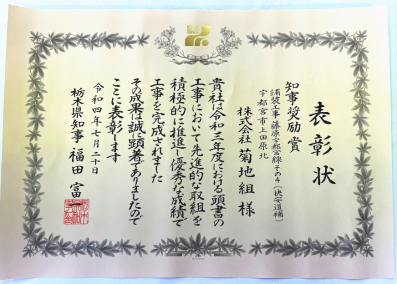 表彰状
知事奨励賞
舗装工事 藤原宇都宮線その4(快安道補)
宇都宮市上田原北
株式会社 菊地組 様
貴社は令和三年度における頭書の
工事において先進的な取組を
積極的に推進し優秀な成績で
工事を完成されました
その成果は誠に顕著でありましたので
ここに表彰します
令和四年七月二十日
栃木県知事 福田富一